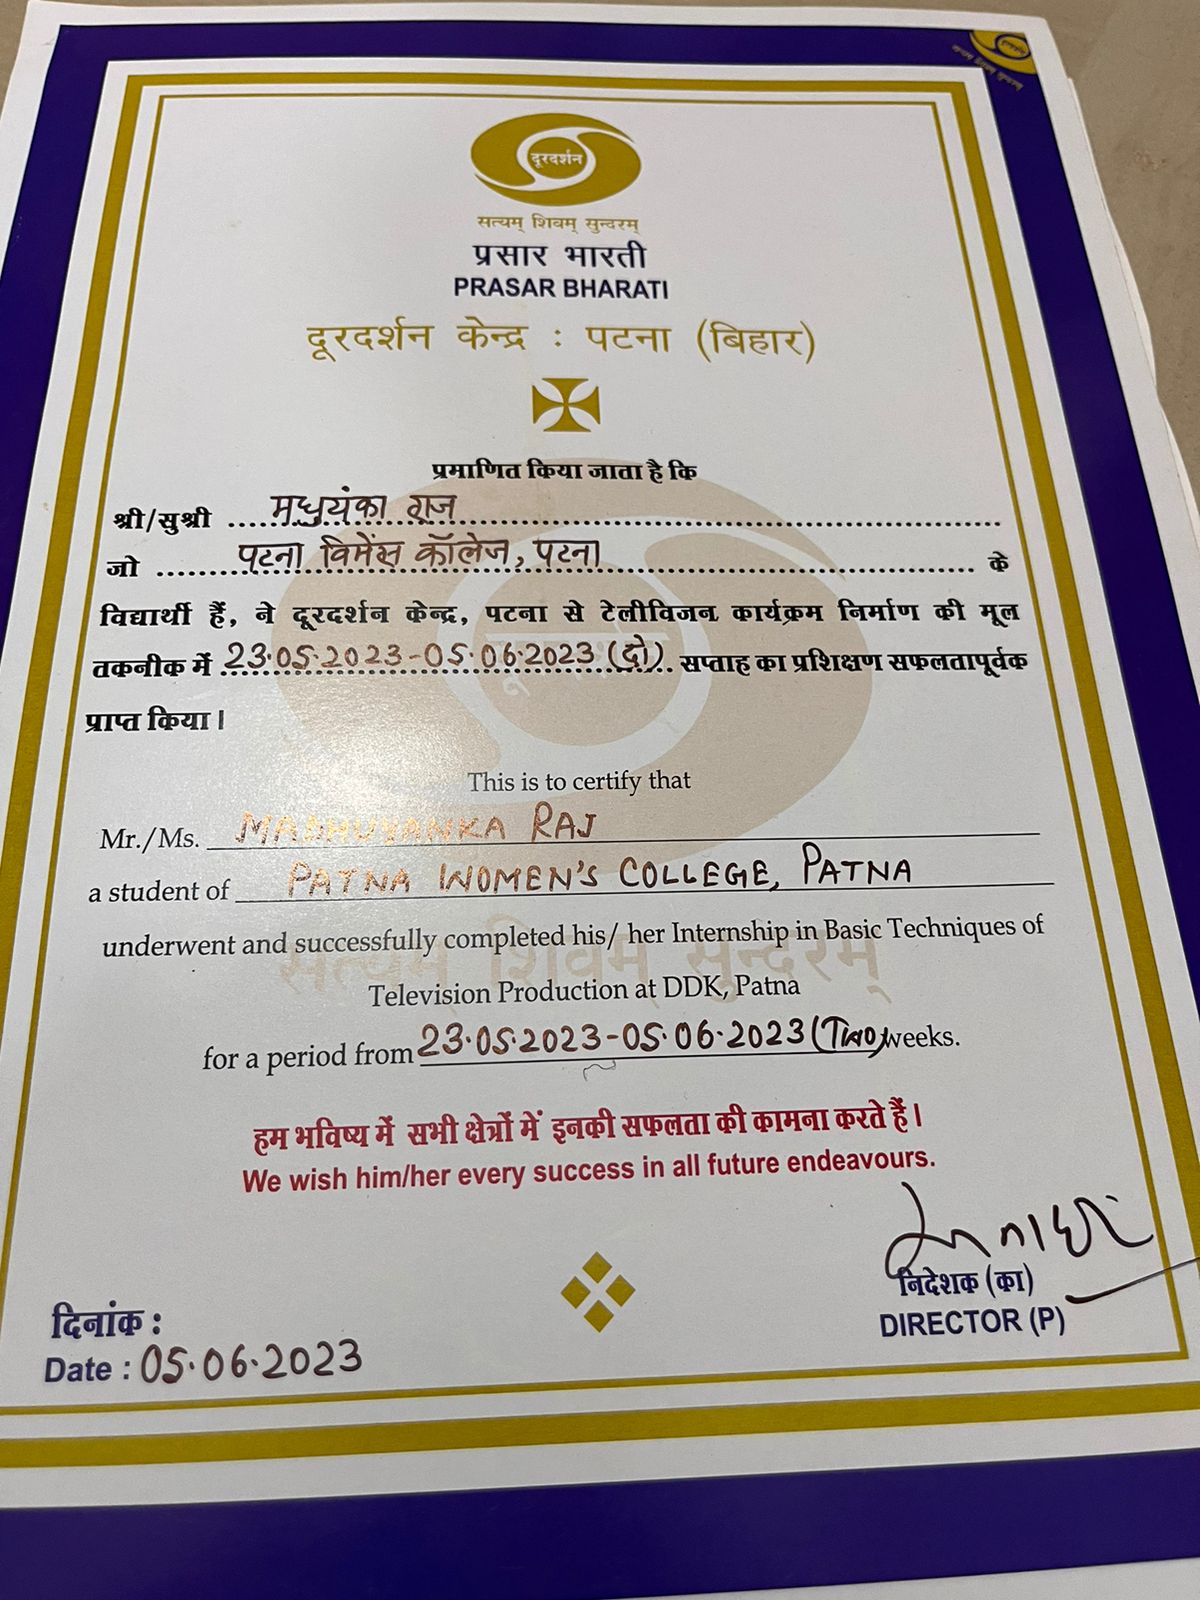 दूरदर्शन
सत्यम् शिवम् सुन्दरम्
प्रसार भारती
PRASAR BHARATI
दूरदर्शन केन्द्र : पटना (बिहार)
प्रमाणित किया जाता है कि
श्री/सुश्री मधुयंका राज
जो पटना विमेंस कॉलेज, पटना के
विद्यार्थी हैं, ने दूरदर्शन केन्द्र, पटना से टेलीविजन कार्यक्रम निर्माण की मूल
तकनीक में 23.05.2023-05.06.2023 (दो) सप्ताह का प्रशिक्षण सफलतापूर्वक
प्राप्त किया।
This is to certify that
Mr./Ms. MADHUYANKA RAJ
a student of PATNA WOMEN'S COLLEGE, PATNA
underwent and successfully completed his/ her Internship in Basic Techniques of
सत्यम् शिवम् सुन्दरम्
Television Production at DDK, Patna
for a period from 23.05.2023-05.06.2023 (TWO) weeks.
हम भविष्य में सभी क्षेत्रों में इनकी सफलता की कामना करते हैं।
We wish him/her every success in all future endeavours.
निदेशक (का)
DIRECTOR (P)
दिनांक :
Date : 05.06.2023